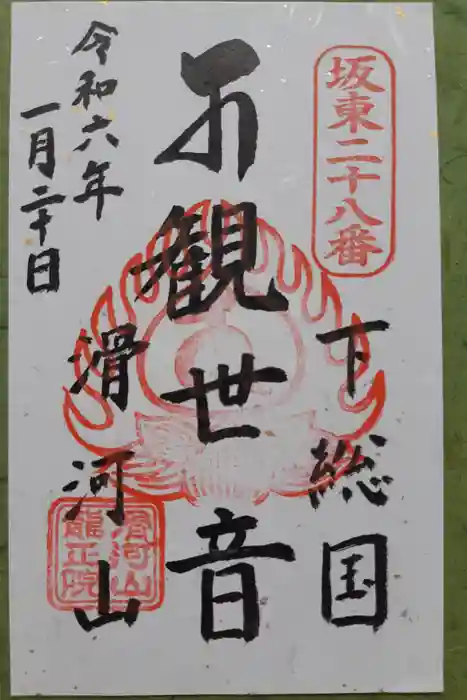 坂東二十八番
下総国
観世音
滑河山
令和六年
一月二十日
滑河山
龍正院